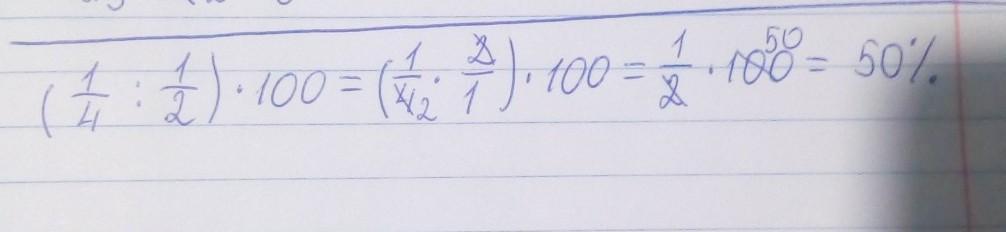 (1/4 : 1/2) · 100 = (1/4 2 · 2/1) · 100 = 1/2 · 100 50 = 50%